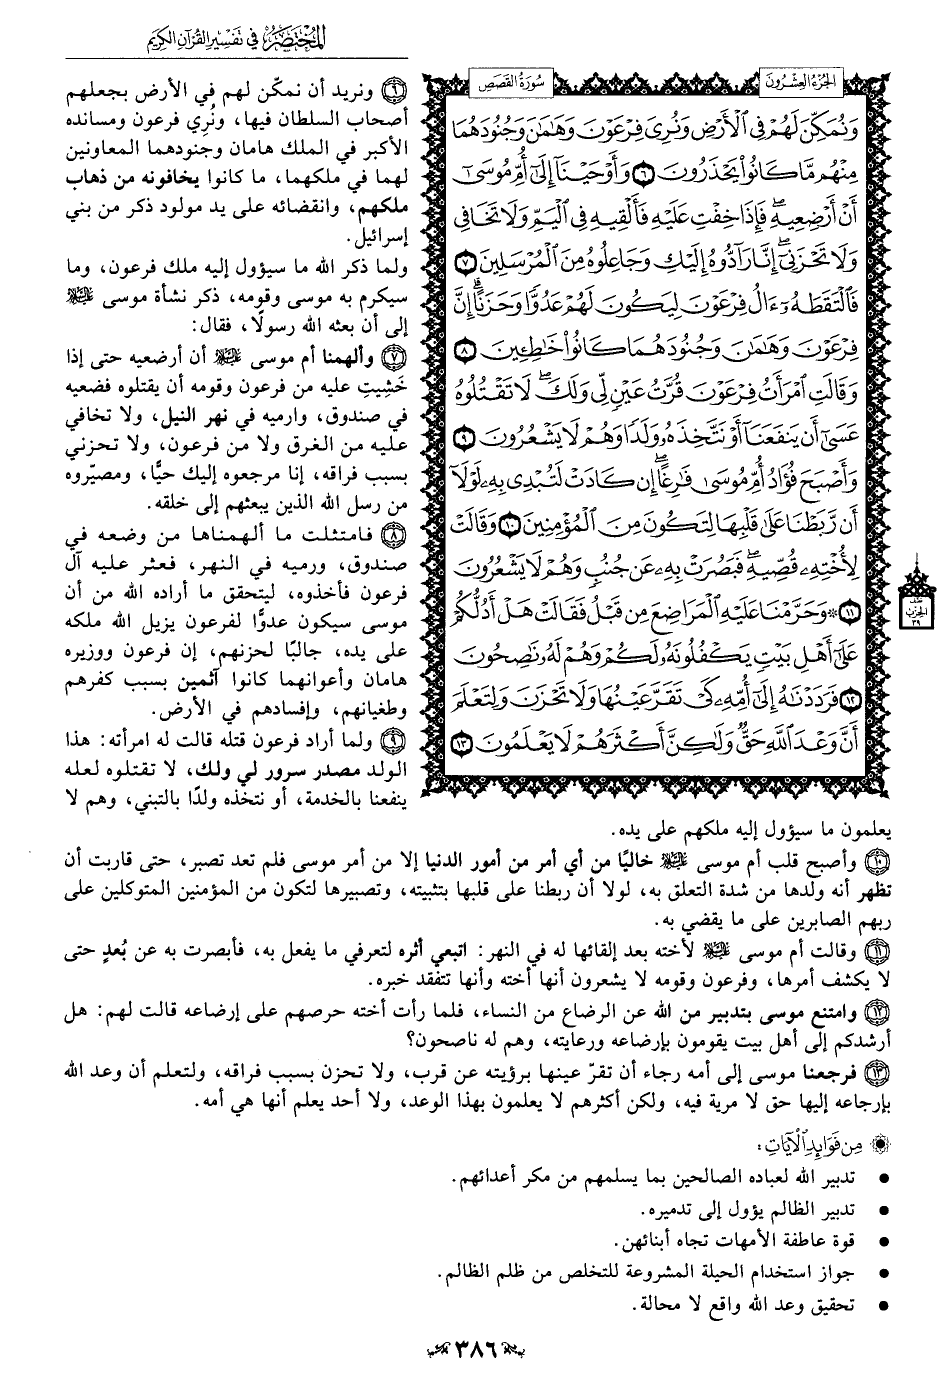 المختصر في تفسير القرآن الكريم
الجزء العشرون
سورة القصص
وَنُمَكِّنَ لَهُمْ فِي ٱلْأَرْضِ وَنُرِيَ فِرْعَوْنَ وَهَٰمَٰنَ وَجُنُودَهُمَا
مِنْهُم مَّا كَانُوا۟ يَحْذَرُونَ ٦ وَأَوْحَيْنَآ إِلَىٰٓ أُمِّ مُوسَىٰٓ
أَنْ أَرْضِعِيهِ ۖ فَإِذَا خِفْتِ عَلَيْهِ فَأَلْقِيهِ فِي ٱلْيَمِّ وَلَا تَخَافِي
وَلَا تَحْزَنِيٓ ۖ إِنَّا رَآدُّوهُ إِلَيْكِ وَجَاعِلُوهُ مِنَ ٱلْمُرْسَلِينَ ٧
فَٱلْتَقَطَهُۥٓ ءَالُ فِرْعَوْنَ لِيَكُونَ لَهُمْ عَدُوًّا وَحَزَنًا ۗ إِنَّ
فِرْعَوْنَ وَهَٰمَٰنَ وَجُنُودَهُمَا كَانُوا۟ خَٰطِـِٔينَ ٨
وَقَالَتِ ٱمْرَأَتُ فِرْعَوْنَ قُرَّتُ عَيْنٍ لِّي وَلَكَ ۖ لَا تَقْتُلُوهُ
عَسَىٰٓ أَن يَنفَعَنَآ أَوْ نَتَّخِذَهُۥ وَلَدًا وَهُمْ لَا يَشْعُرُونَ ٩
وَأَصْبَحَ فُؤَادُ أُمِّ مُوسَىٰ فَٰرِغًا ۖ إِن كَادَتْ لَتُبْدِي بِهِۦ لَوْلَآ
أَن رَّبَطْنَا عَلَىٰ قَلْبِهَا لِتَكُونَ مِنَ ٱلْمُؤْمِنِينَ ١٠ وَقَالَتْ
لِأُخْتِهِۦ قُصِّيهِ ۖ فَبَصُرَتْ بِهِۦ عَن جُنُبٍ وَهُمْ لَا يَشْعُرُونَ
١١ ۞ وَحَرَّمْنَا عَلَيْهِ ٱلْمَرَاضِعَ مِن قَبْلُ فَقَالَتْ هَلْ أَدُلُّكُمْ
عَلَىٰٓ أَهْلِ بَيْتٍ يَكْفُلُونَهُۥ لَكُمْ وَهُمْ لَهُۥ نَٰصِحُونَ
١٢ فَرَدَدْنَٰهُ إِلَىٰٓ أُمِّهِۦ كَيْ تَقَرَّ عَيْنُهَا وَلَا تَحْزَنَ وَلِتَعْلَمَ
أَنَّ وَعْدَ ٱللَّهِ حَقٌّ وَلَٰكِنَّ أَكْثَرَهُمْ لَا يَعْلَمُونَ ١٣
نصف
الحزب
٣٩
٦ ونريد أن نمكّن لهم في الأرض بجعلهم
أصحاب السلطان فيها، ونُرِي فرعون ومسانده
الأكبر في الملك هامان وجنودهما المعاونين
لهما في ملكهما، ما كانوا يخافونه من ذهاب
ملكهم، وانقضائه على يد مولود ذكر من بني
إسرائيل.
ولما ذكر الله ما سيؤول إليه ملك فرعون، وما
سيكرم به موسى وقومه، ذكر نشأة موسى ﵇
إلى أن بعثه الله رسولًا، فقال:
٧ وألهمنا أم موسى ﵇ أن أرضعيه حتى إذا
خَشِيتِ عليه من فرعون وقومه أن يقتلوه فضعيه
في صندوق، وارميه في نهر النيل، ولا تخافي
عليه من الغرق ولا من فرعون، ولا تحزني
بسبب فراقه، إنا مرجعوه إليك حيًّا، ومصيّروه
من رسل الله الذين يبعثهم إلى خلقه.
٨ فامتثلت ما ألهمناها من وضعه في
صندوق، ورميه في النهر، فعثر عليه آل
فرعون فأخذوه، ليتحقق ما أراده الله من أن
موسى سيكون عدوًّا لفرعون يزيل الله ملكه
على يده، جالبًا لحزنهم، إن فرعون ووزيره
هامان وأعوانهما كانوا آثمين بسبب كفرهم
وطغيانهم، وإفسادهم في الأرض.
٩ ولما أراد فرعون قتله قالت له امرأته: هذا
الولد مصدر سرور لي ولك، لا تقتلوه لعله
ينفعنا بالخدمة، أو نتخذه ولدًا بالتبني، وهم لا
يعلمون ما سيؤول إليه ملكهم على يده.
١٠ وأصبح قلب أم موسى ﵇ خاليًا من أي أمر من أمور الدنيا إلا من أمر موسى فلم تعد تصبر، حتى قاربت أن
تظهر أنه ولدها من شدة التعلق به، لولا أن ربطنا على قلبها بتثبيته، وتصبيرها لتكون من المؤمنين المتوكلين على
ربهم الصابرين على ما يقضي به.
١١ وقالت أم موسى ﵇ لأخته بعد إلقائها له في النهر: اتبعي أثره لتعرفي ما يفعل به، فأبصرت به عن بُعدٍ حتى
لا يكشف أمرها، وفرعون وقومه لا يشعرون أنها أخته وأنها تتفقد خبره.
١٢ وامتنع موسى بتدبير من الله عن الرضاع من النساء، فلما رأت أخته حرصهم على إرضاعه قالت لهم: هل
أرشدكم إلى أهل بيت يقومون بإرضاعه ورعايته، وهم له ناصحون؟
١٣ فرجعنا موسى إلى أمه رجاء أن تقرّ عينها برؤيته عن قرب، ولا تحزن بسبب فراقه، ولتعلم أن وعد الله
بإرجاعه إليها حق لا مرية فيه، ولكن أكثرهم لا يعلمون بهذا الوعد، ولا أحد يعلم أنها هي أمه.
من فوائد الآيات:
• تدبير الله لعباده الصالحين بما يسلمهم من مكر أعدائهم.
• تدبير الظالم يؤول إلى تدميره.
• قوة عاطفة الأمهات تجاه أبنائهن.
• جواز استخدام الحيلة المشروعة للتخلص من ظلم الظالم.
• تحقيق وعد الله واقع لا محالة.
٣٨٦